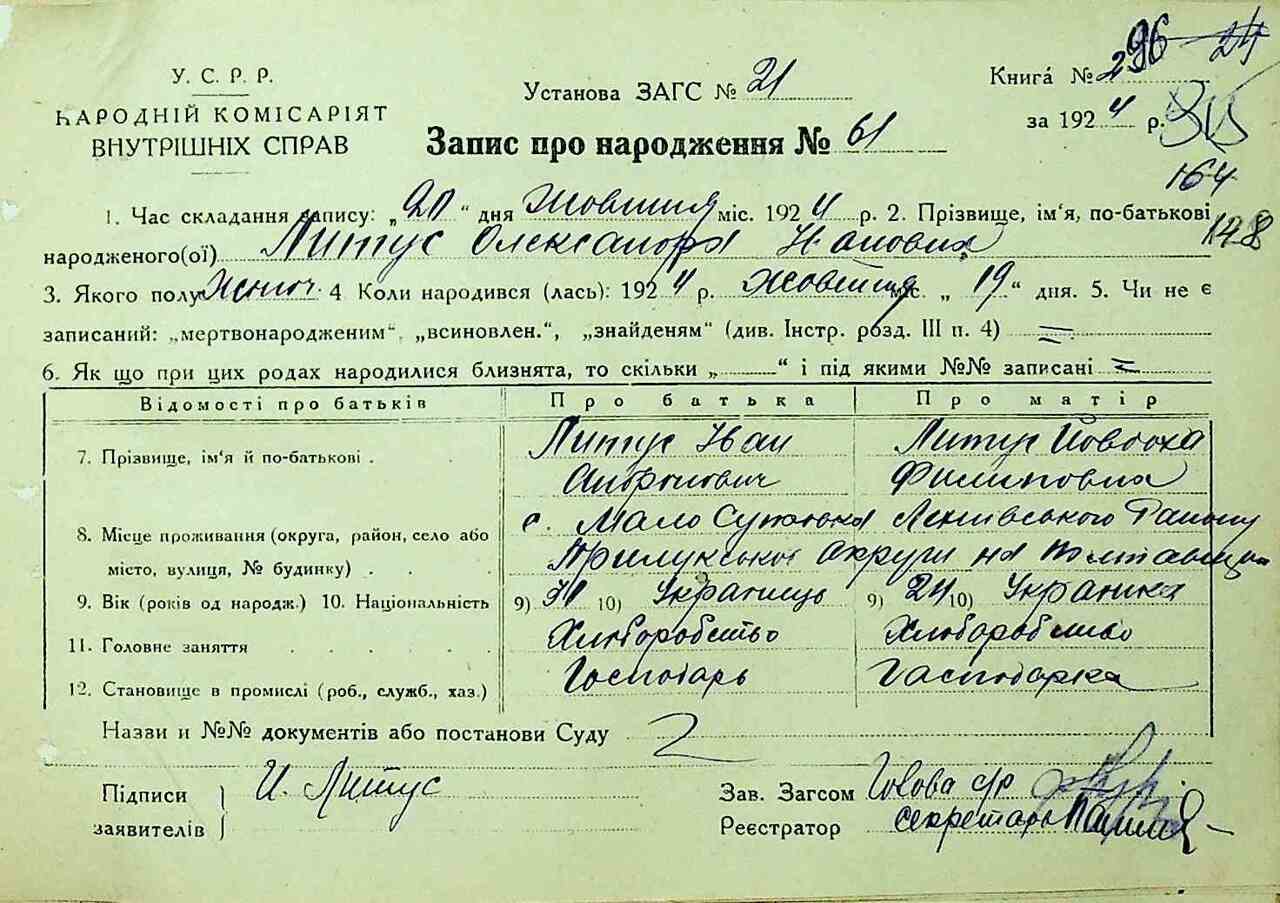 У. С. Р. Р.
НАРОДНІЙ КОМІСАРІЯТ
ВНУТРІШНІХ СПРАВ
Установа ЗАГС № 21
Книга № 296 24
за 1924 р.
164
148
Запис про народження № 61
1. Час складання запису: „20“ дня Жовтня міс. 1924 р. 2. Прізвище, ім'я, по-батькові
народженого(ої) Литус Олександра Івановна
3. Якого полу Жіноч. 4 Коли народився (лась): 1924 р. Жовтня міс. „19“ дня. 5. Чи не є
записаний: „мертвонародженим“, „всиновлен.“, „знайденям“ (див. Інстр. розд. III п. 4) =
6. Як що при цих родах народилися близнята, то скільки „ “ і під якими №№ записані =
Відомості про батьків Про батька Про матір
7. Прізвище, ім'я й по-батькові . Литус Іван Литус Йовдоха
Андронович Филиповна
8. Місце проживання (округа, район, село або с. Мало Району
місто, вулиця, № будинку) . . Прилукської Округи на Полтавщині
9. Вік (років од народж.) 10. Національність 9) 31 10) Українець 9) 24 10) Українка
11. Головне заняття Хлюборобство Хлюборобство
12. Становище в промислі (роб., служб., хаз.) Господарь Господарка
Назви и №№ документів або постанови Суду
Підписи И. Литус
заявителів
Зав. Загсом Голова с/р
Реєстратор секретарь